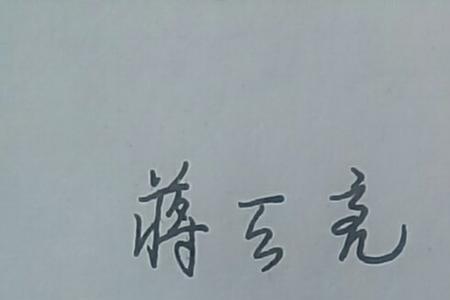 蒋云亮